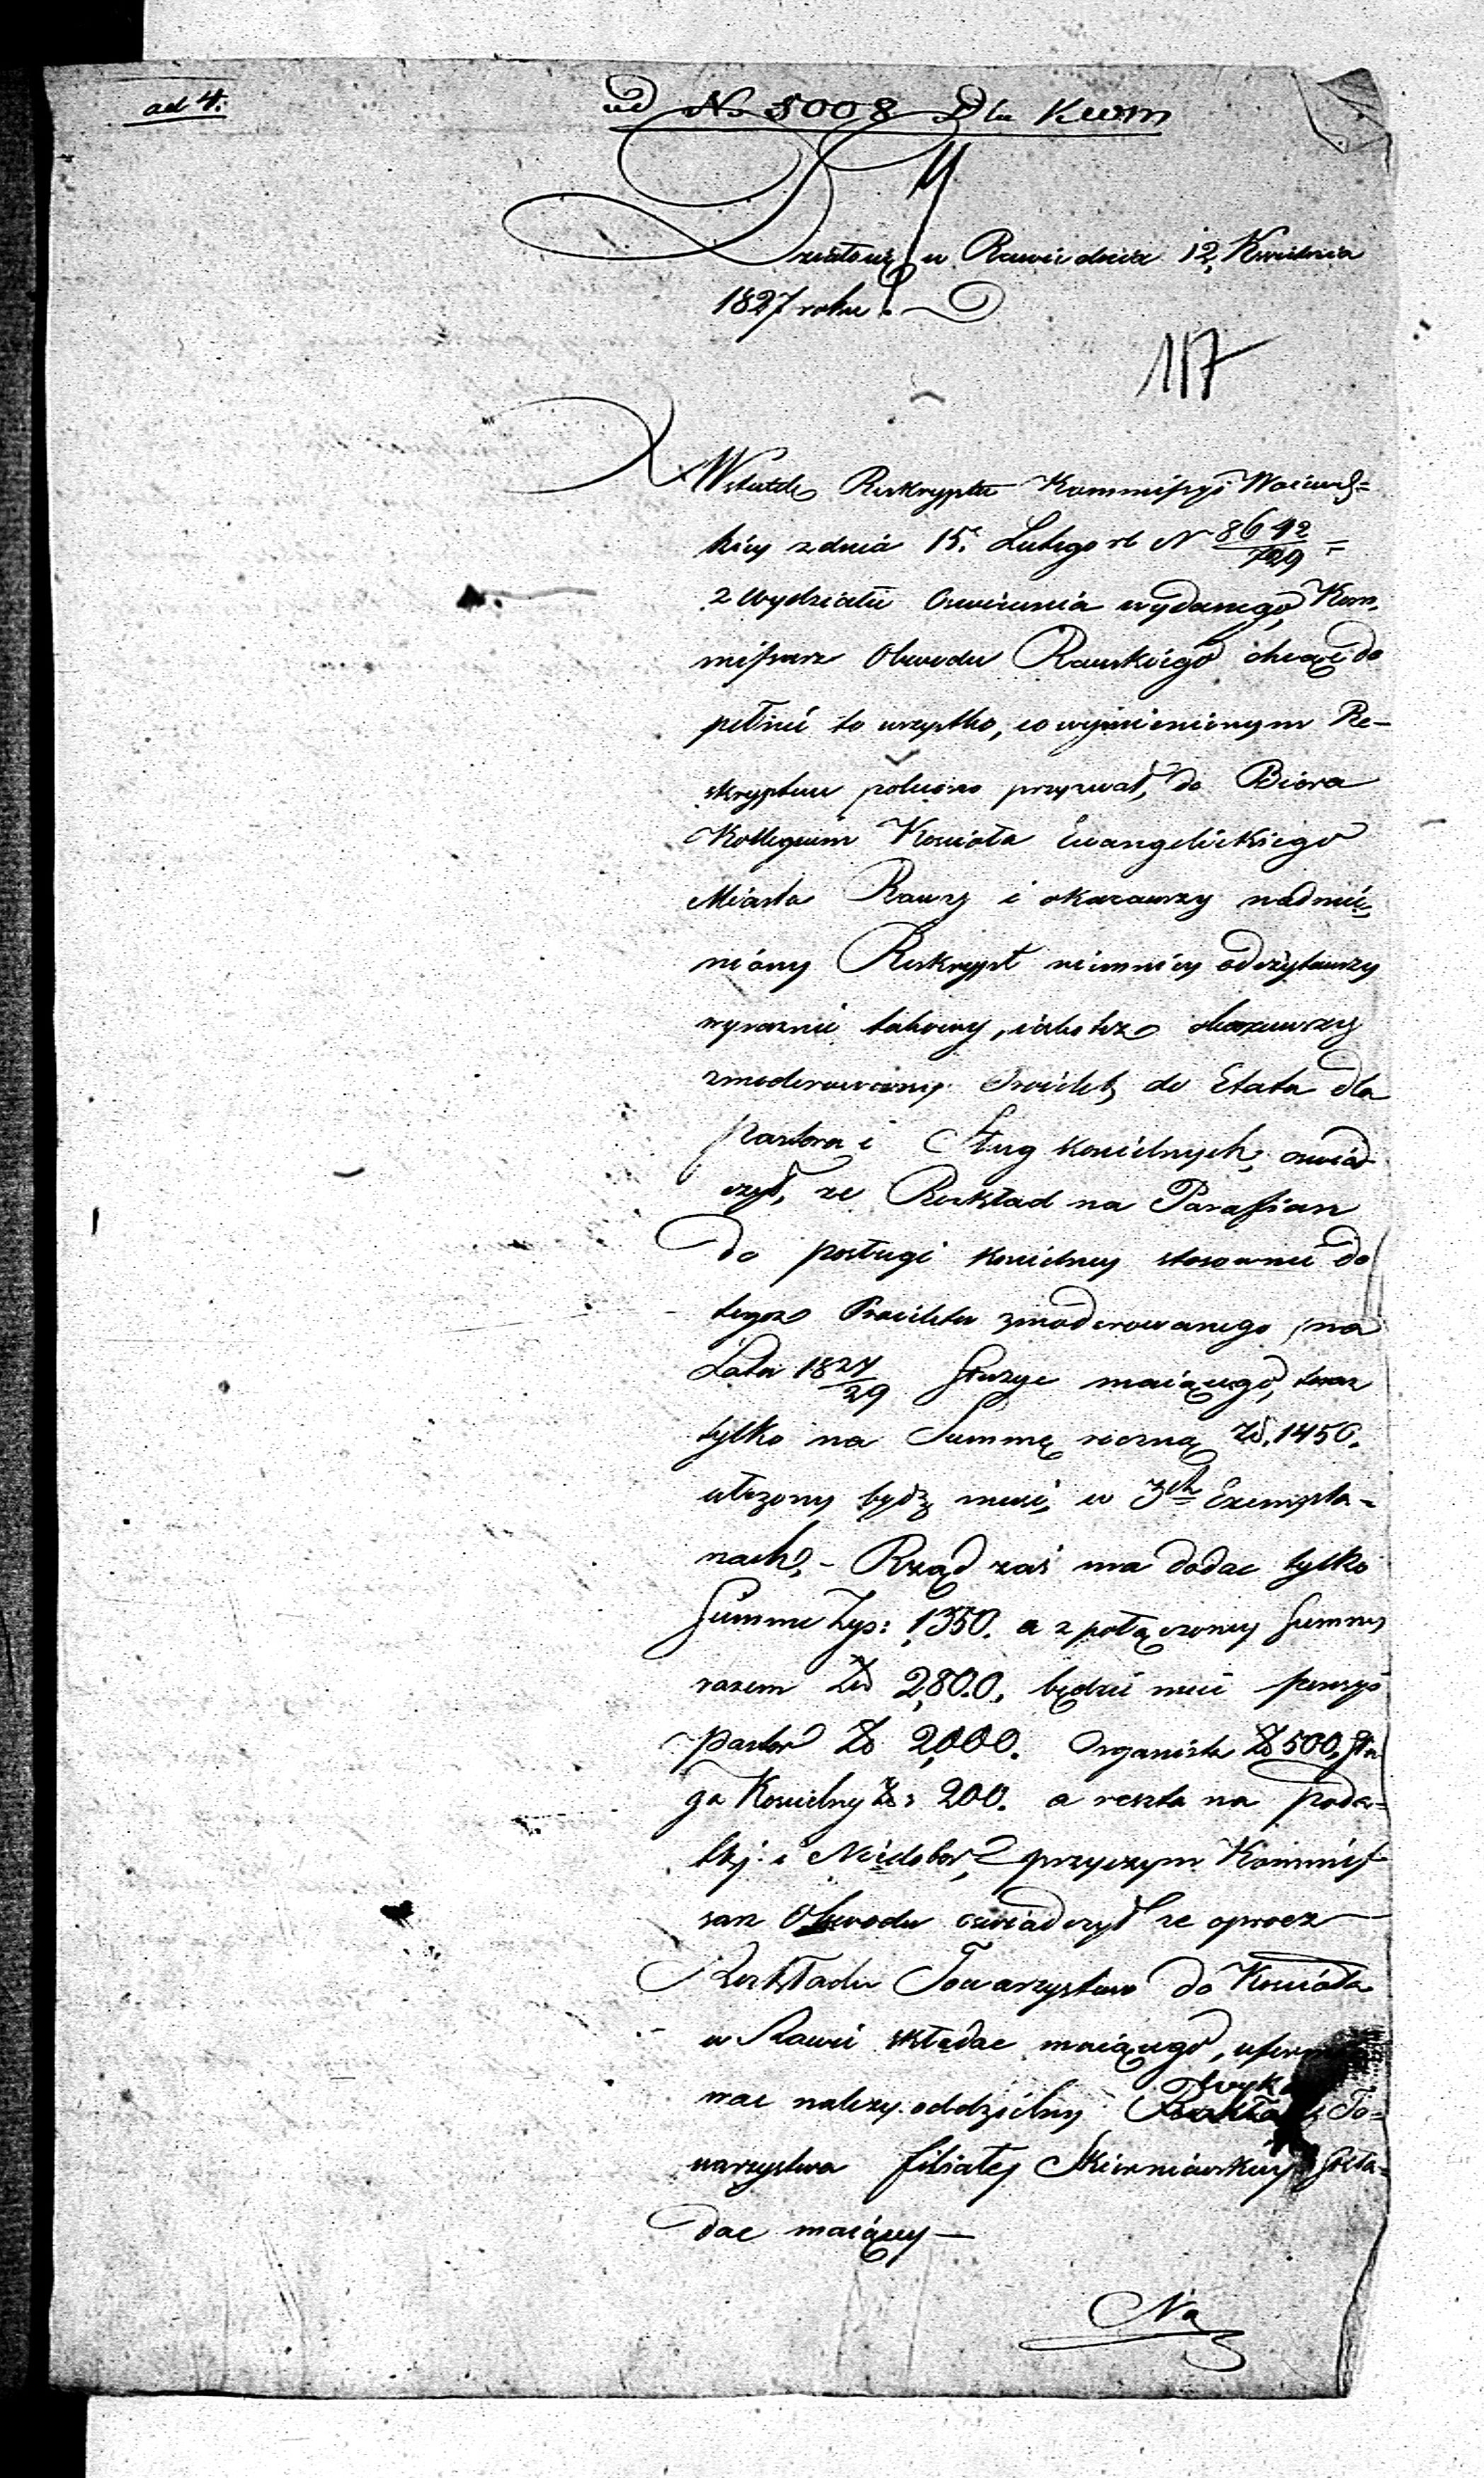 ad 4.
ad No 5008 Dla Kwm
Działo się w Rawie dnia 12 Kwietnia
1827 roku
117
W skutek Reskryptu Kommissyi Woiewodz=
kiey z dnia 15. Lutego rb N 8642/729 =
z Wydziału Oswiecenia wydanego, Kom,
missarz Obwodu Rawskiego chcąc do
pełnić to wszystko, co wymienionym Re-
skryptem polecono przyzwał, do Biora
Kollegium Kościoła Ewangelickiego
Miasta Rawy i okazawszy nadmie,
niony Reskrypt niemniey odczytawszy
wyraznie takowy, iako też okazawszy
zmoderowany Proiekt, do Etatu dla
Pastora i Sług koscielnych, oswiad
czył, ze Rozkład na Parafian
do posługi koscielney stosownie do
tegoż Proiektu zmoderowanego, na
Lata 1827/29 służyc maiącego, teraz
tylko na Summę roczną Zł. 1450.
ułożony bydz musi, w 3ch Exempla-
rzach, - Rząd zaś ma dodac tylko
Summe Złp: 1350. a z połączoney Summy
razem Zł 2,800. będzie miec pensyi
Pastor Zł 2,000. Organista Zł 500, Słu
ga Koscielny Zł: 200. a reszta na podat=
ki i Niedobor, przyczym Kommis
sarz Obwodu oswiadczył ze oprocz
Rozkładu Towarzystwo do Kościoła
w Rawie składac maiącego,
wac nalezy oddzielny To=
warzystwa filialey Skierniewskiey skła=
dac maiący —
Na